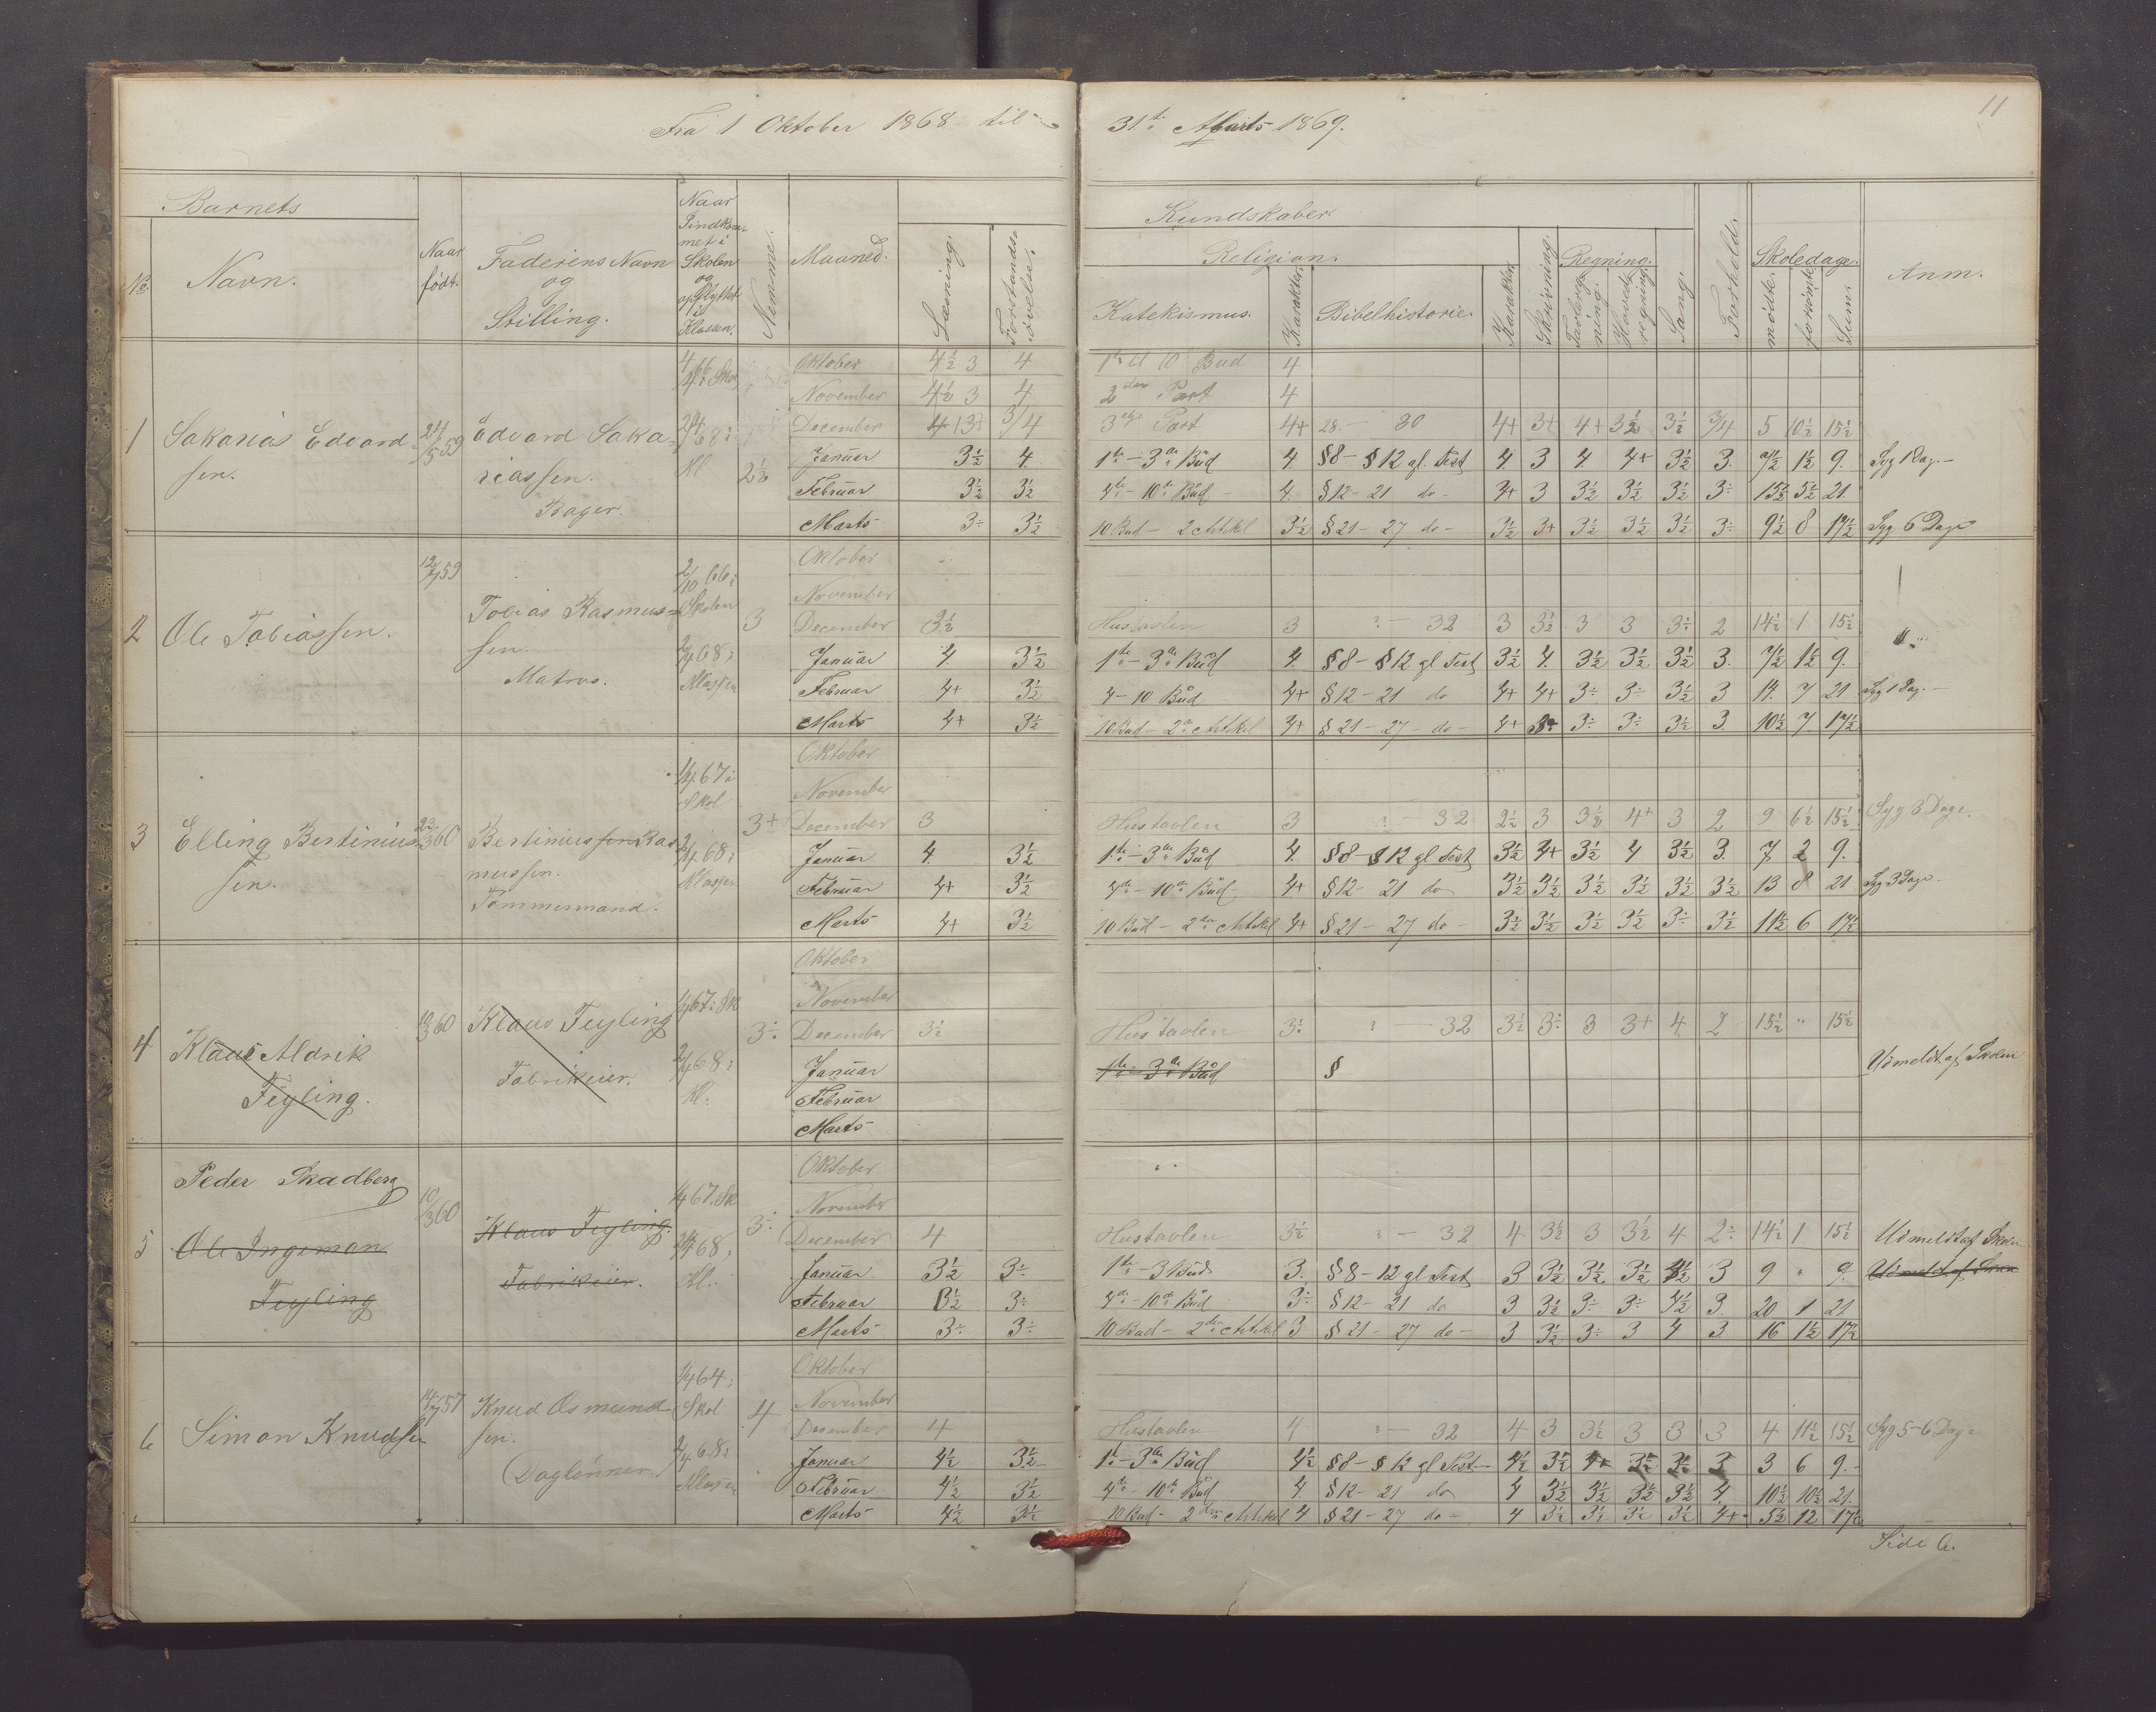 11
Fra 1 Oktober 1868 til 31te Marts 1869.
Barnets
No. Navn. Naar født. Faderens Navn og Stilling. Naar Indkommet i Skolen og opflyttet i Klassen. Nemme. Maaned. Læsning. Forstands-øvelse.
Kundskaber.
Religion. Skrivning. Regning. Sang. Forhold. Skoledage. Anm.
Katekismus. Karakter. Bibelhistorie. Karakter. Tavleregning. Hovedregning. mødte. forsømte. Sum.
1 Sakarias Edvardsen. 24/5 59 Edvard Sakariassen. Bager. 2½
Oktober 4½ 3 4 1te til 10 Bud 4
November 4½ 3 4 2den Part 4
December 4+ 3+ 3/4 3die Part 4+ 28 – 30 4+ 3+ 4+ 3½ 3½ 3/4 5 10½ 15½
Januar 3½ 4. 1te – 3die Bud 4. §8 – §12 gl. Test 4. 3 4. 4+ 3½ 3. 7½ 1½ 9. Syg 1 Dag. –
Februar 3½ 3½ 4de – 10de Bud – 4. §12 – 21 do – 4+ 3 3½ 3½ 3½ 3÷ 15½ 5½ 21.
Marts 3÷ 3½ 10 Bud – 2 Artikel 3½ §21 – 27 do – 3½ 3+ 3½ 3½ 3½ 3÷ 9½ 8 17½ Syg 6 Dage
2 Ole Tobiassen. 12/7 59 Tobias Rasmussen. Matros. 2/10 66 i Skolen 2/4 68 i Klassen 3
Oktober
November
December 3½ Hustavlen 3 " – 32 3 3½ 3 3 3÷ 2 14½ 1 15½
Januar 4. 3½ 1te – 3die Bud 4. §8 – §12 gl Test 3½ 4. 3½ 3½ 3½ 3. 7½ 1½ 9.
Februar 4+ 3½ 4 – 10 Bud 4+ §12 – 21 do 4+ 4+ 3÷ 3÷ 3½ 3 14. 7 21 Syg 1 Dag. –
Marts 4+ 3½ 10 Bud – 2den Artikel 4+ §21 – 27 – do – 4+ 3÷ 3÷ 3½ 3. 10½ 7 17½
3 Elling Bertiniussen. 23/3 60 Bertinius Rasmussen. Tømmermand. 1/4 67 i Skol 2/4 68 i Klassen 3+
Oktober
November
December 3 Hustavlen 3 " – 32 2½ 3 3½ 4+ 3 2 9 6½ 15½ Syg 3 Dage.
Januar 4 3½ 1te – 3die Bud 4. §8 – §12 gl Test 3½ 4+ 3½ 4 3½ 3. 7 2 9.
Februar 4+ 3½ 4de – 10de Bud 4+ §12 – 21 do 3½ 3½ 3½ 3½ 3½ 3½ 13 8 21 Syg 3 Dage
Marts 4+ 3½ 10 Bud – 2den Artikel 4+ §21 – 27 do – 3½ 3½ 3½ 3½ 3÷ 3½ 11½ 6 17½
4 Klaus Aldrik Feyling. 60 Klaus Feyling Fabrikeier. 1/4 67 i Sk 2/4 68 i Kl. 3÷
Oktober
November
December 3½ Hustavlen 3÷ " – 32 3½ 3÷ 3 3+ 4 2 15½ " 15½
Januar 1te – 3die Bud § Udmeldt af Skolen
Februar
Marts
Peder Skadberg
5 Ole Ingeman Feyling 10/3 60 Klaus Feyling. Fabrikeier. 1/4 67. Sk 68 i Kl. 3÷
Oktober
November
December 4 Hustavlen 3½ " – 32 4 3½ 3 3½ 4 2÷ 14½ 1 15½ Udmeldt af Skolen
Januar 3½ 3÷ 1te – 3 Bud 3. §8 – 12 gl Test 3 3½ 3½ 3½ 4½ 3 9 " 9. Udmeldt af
Februar 3½ 3÷ 4de – 10de Bud 3÷ §12 – 21 do 3 3½ 3÷ 3÷ 4½ 3. 20 1 21.
Marts 3÷ 3÷ 10 Bud – 2den Artikel 3 §21 – 27 do – 3 3½ 3÷ 3 4 3. 16 1½ 17½
6 Simon Knudsen 14/7 57 Knud Osmundsen. Daglønner. 1/4 64 i Skol 2/4 68 i Klassen 4
Oktober
November
December 4 Hustavlen 4 " – 32 4 3 3½ 3 3 3 4 11½ 15½ Syg 5–6 Dage
Januar 4½ 3½ 1te – 3die Bud 4½ §8 – §12 gl Test. – 4½ 3½ 4+ 3½ 3½ 3 3 6 9. –
Februar 4½ 3½ 4de – 10de Bud 4 §12 – 21 do 4 3½ 3½ 3½ 3½ 4. 10½ 10½ 21.
Marts 4½ 3½ 10 Bud – 2den Artikel 4 §21 – 27 do – 4 3½ 3½ 3½ 3½ 4+ 5½ 12 17½
Side 6.